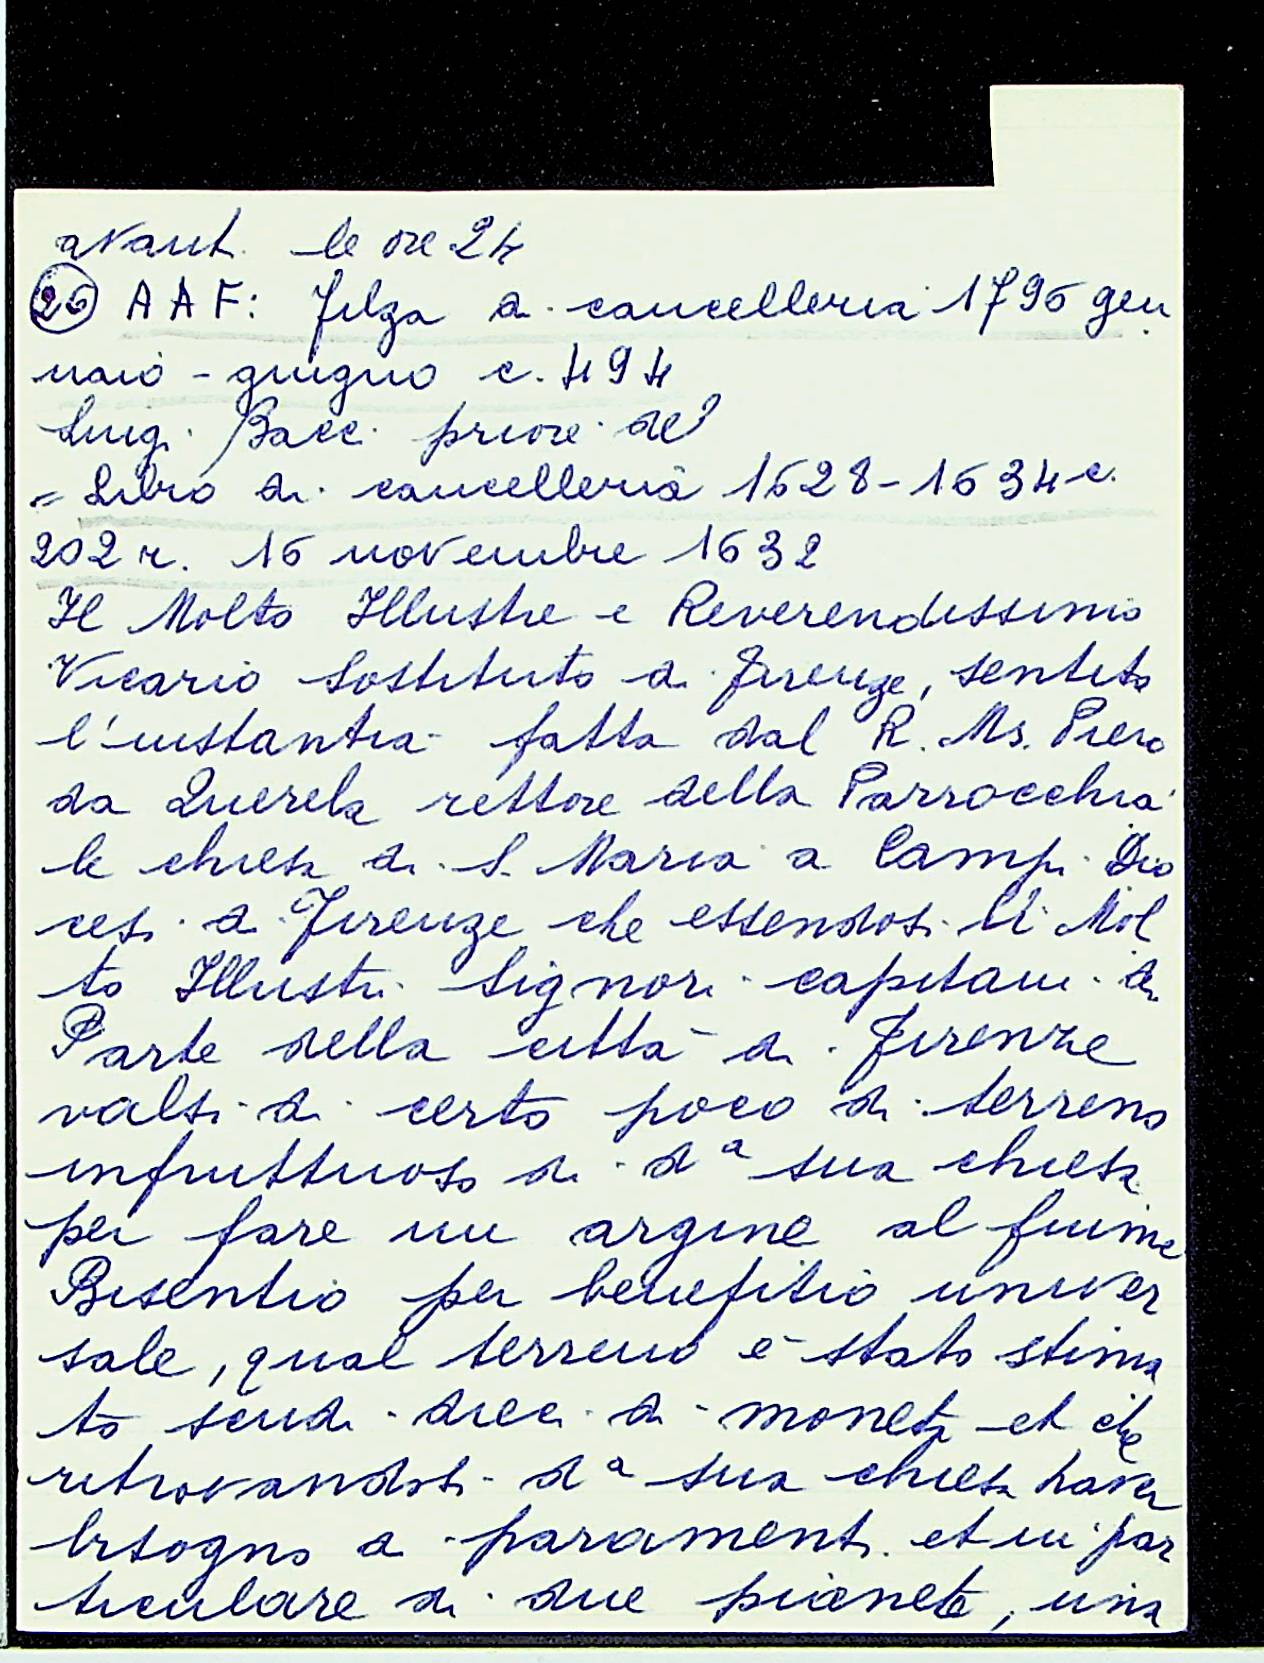 avanti le ore 24
26 A A F: Filza di cancelleria 1796 gen
naio - giugno c. 494
Luigi Bacci priore del
= Libro di cancelleria 1628-1634 c.
202 r. 16 novembre 1632
Il Molto Illustre e Reverendissimo
Vicario Sostituto di Firenze, sentito
l'instantia fatta dal R. Ms. Piero
da Querela rettore della Parrocchia
le chiesa di S. Maria a Campi Dio
cesi di Firenze che essendosi li Mol
to Illustri Signori capitani di
Parte della città di Firenze
valsi di certo poco di terreno
infruttuoso di da sua chiesa
per fare un argine al fiume
Bisentio per benefitio univer
sale, qual terreno è stato stima
to scudi dieci di moneta et che
ritrovandosi da sua chiesa haver
bisogno di paramenti et in par
ticulare di due pianete, una